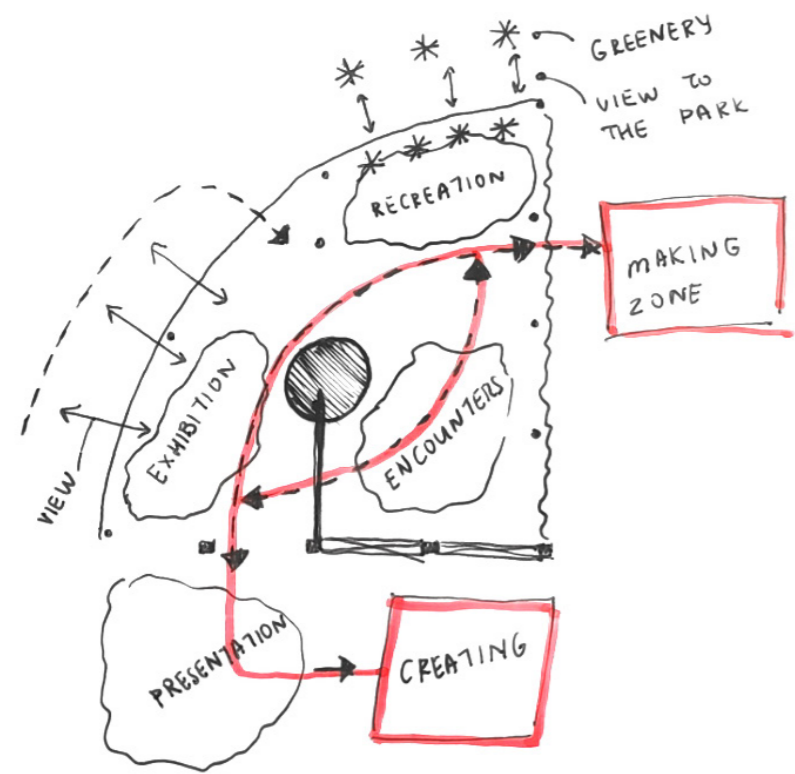 GREENERY
VIEW TO
THE PARK
RECREATION
MAKING
ZONE
EXHIBITION
ENCOUNTERS
VIEW
PRESENTATION
CREATING